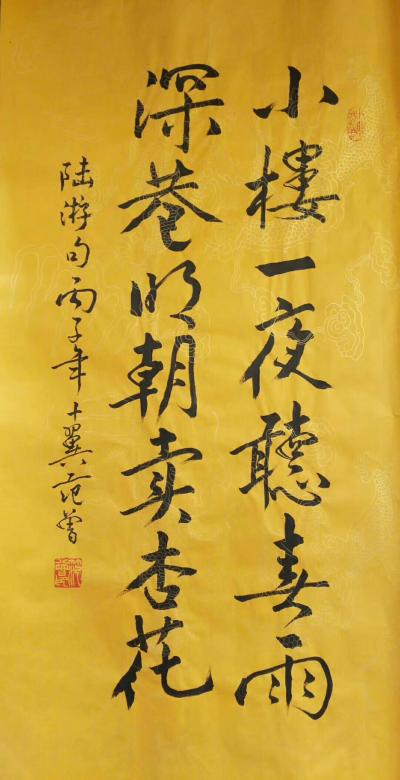 小樓一夜聽春雨
深巷明朝卖杏花
陆游句丙子年十翼范曾